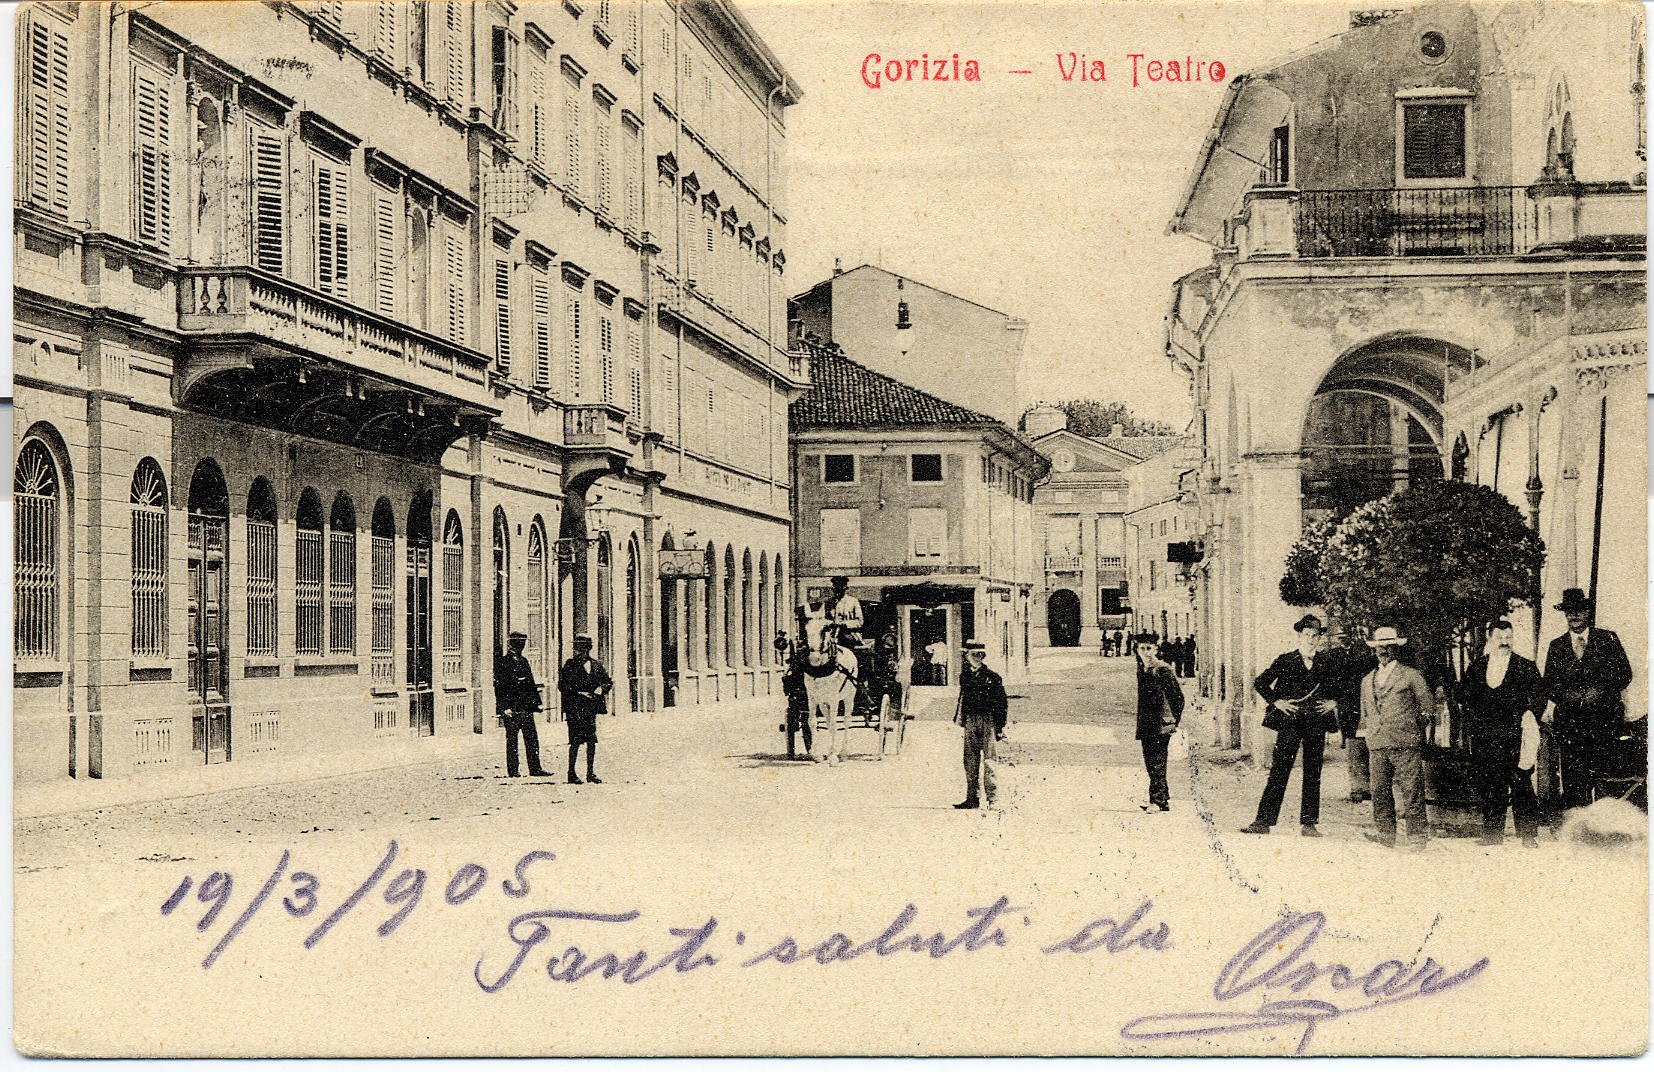 Gorizia – Via Teatro
19/3/905
Tanti saluti da Oscar